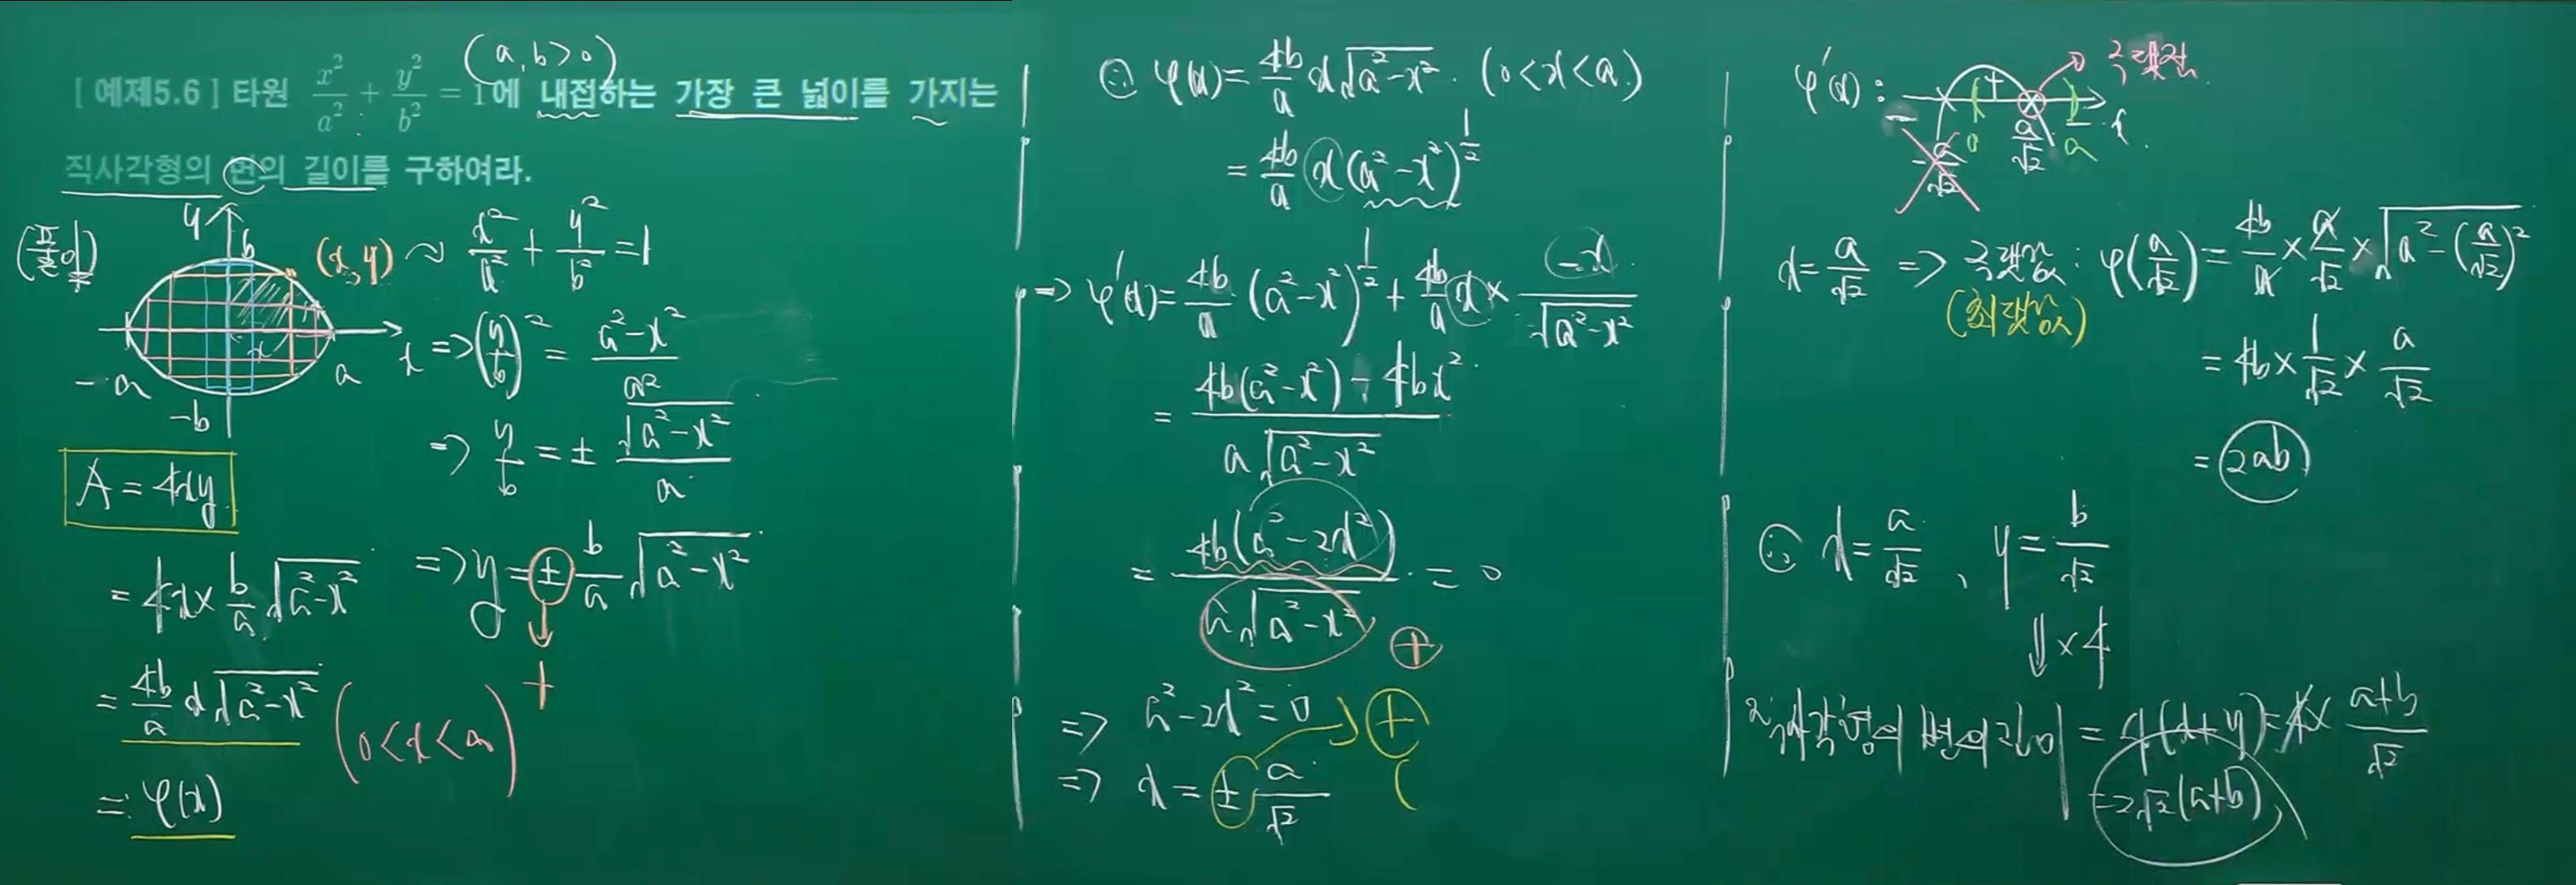 (a, b > 0)
[ 예제5.6 ] 타원 x²/a² + y²/b² = 1에 내접하는 가장 큰 넓이를 가지는
직사각형의 변의 길이를 구하여라.
y
b
(x, y) ~ x²/a² + y²/b² = 1
x
-a
a
x
-b
⇒ (y/b)² = (a²-x²)/a²
⇒ y/b = ± √(a²-x²)/a
⇒ y = ± b/a √(a²-x²)
+
A = 4xy
= 4x × b/a √(a²-x²)
= 4b/a x √(a²-x²) (0 < x < a)
=: φ(x)
∴ φ(x) = 4b/a x √(a²-x²) . (0 < x < a)
= 4b/a x (a²-x²)^(1/2)
⇒ φ'(x) = 4b/a (a²-x²)^(1/2) + 4b/a x × (-x)/√(a²-x²)
= (4b(a²-x²) - 4bx²)/(a√(a²-x²))
= 4b(a²-2x²)/(a√(a²-x²)) = 0
+
⇒ a²-2x² = 0
+
⇒ x = ± a/√2
φ'(x) :
극댓점
-
+
-
x
-a/√2
0
a/√2
a
x = a/√2 ⇒ 극댓값 : φ(a/√2) = 4b/a × a/√2 × √(a² - (a/√2)²)
(최댓값)
= 4b × 1/√2 × a/√2
= 2ab
∴ x = a/√2 , y = b/√2
⇓ × 4
직사각형의 변의 길이 = 4(x+y) = 4 × (a+b)/√2
= 2√2(a+b)